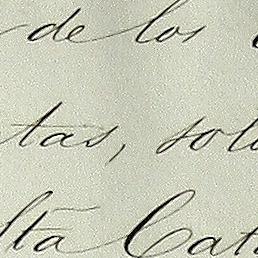 de los
tas, sol
lta Cat